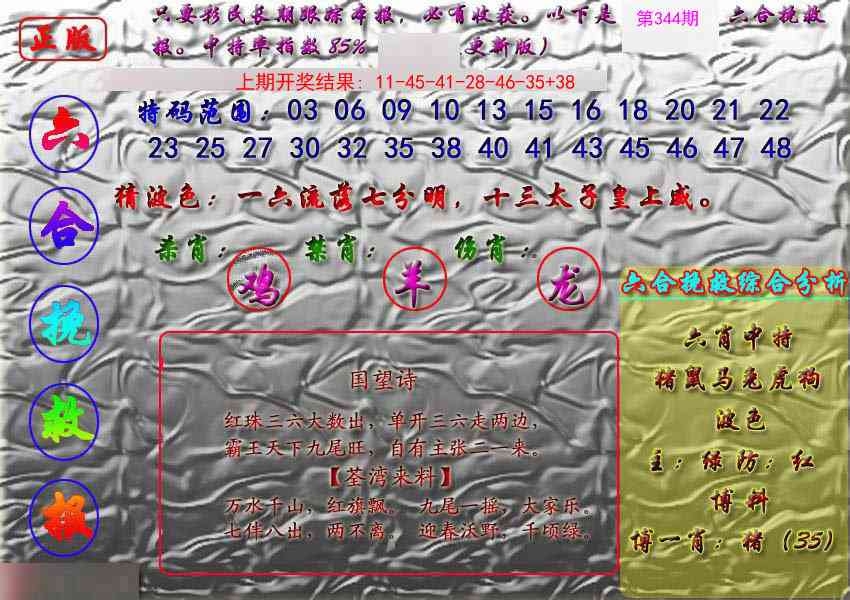 正版
只要彩民长期跟踪本报，必有收获。以下是
第344期
六合挽救
报。中特率指数85%
更新版）
上期开奖结果: 11-45-41-28-46-35+38
特码范围：03 06 09 10 13 15 16 18 20 21 22
23 25 27 30 32 35 38 40 41 43 45 46 47 48
猜波色：一六流落七分明，十三太子皇上威。
六合挽救报
杀肖：鸡
禁肖：羊
伤肖：龙
国望诗
红珠三六大数出，单开三六走两边，
霸王天下九尾旺，自有主张二一来。
【荃湾来料】
万水千山，红旗飘。 九尾一摇，大家乐。
七伴八出，两不离。 迎春沃野，千顷绿。
六合挽救综合分析
六肖中特
猪鼠马兔虎狗
波色
主：绿防：红
博料
博一肖：猪（35）